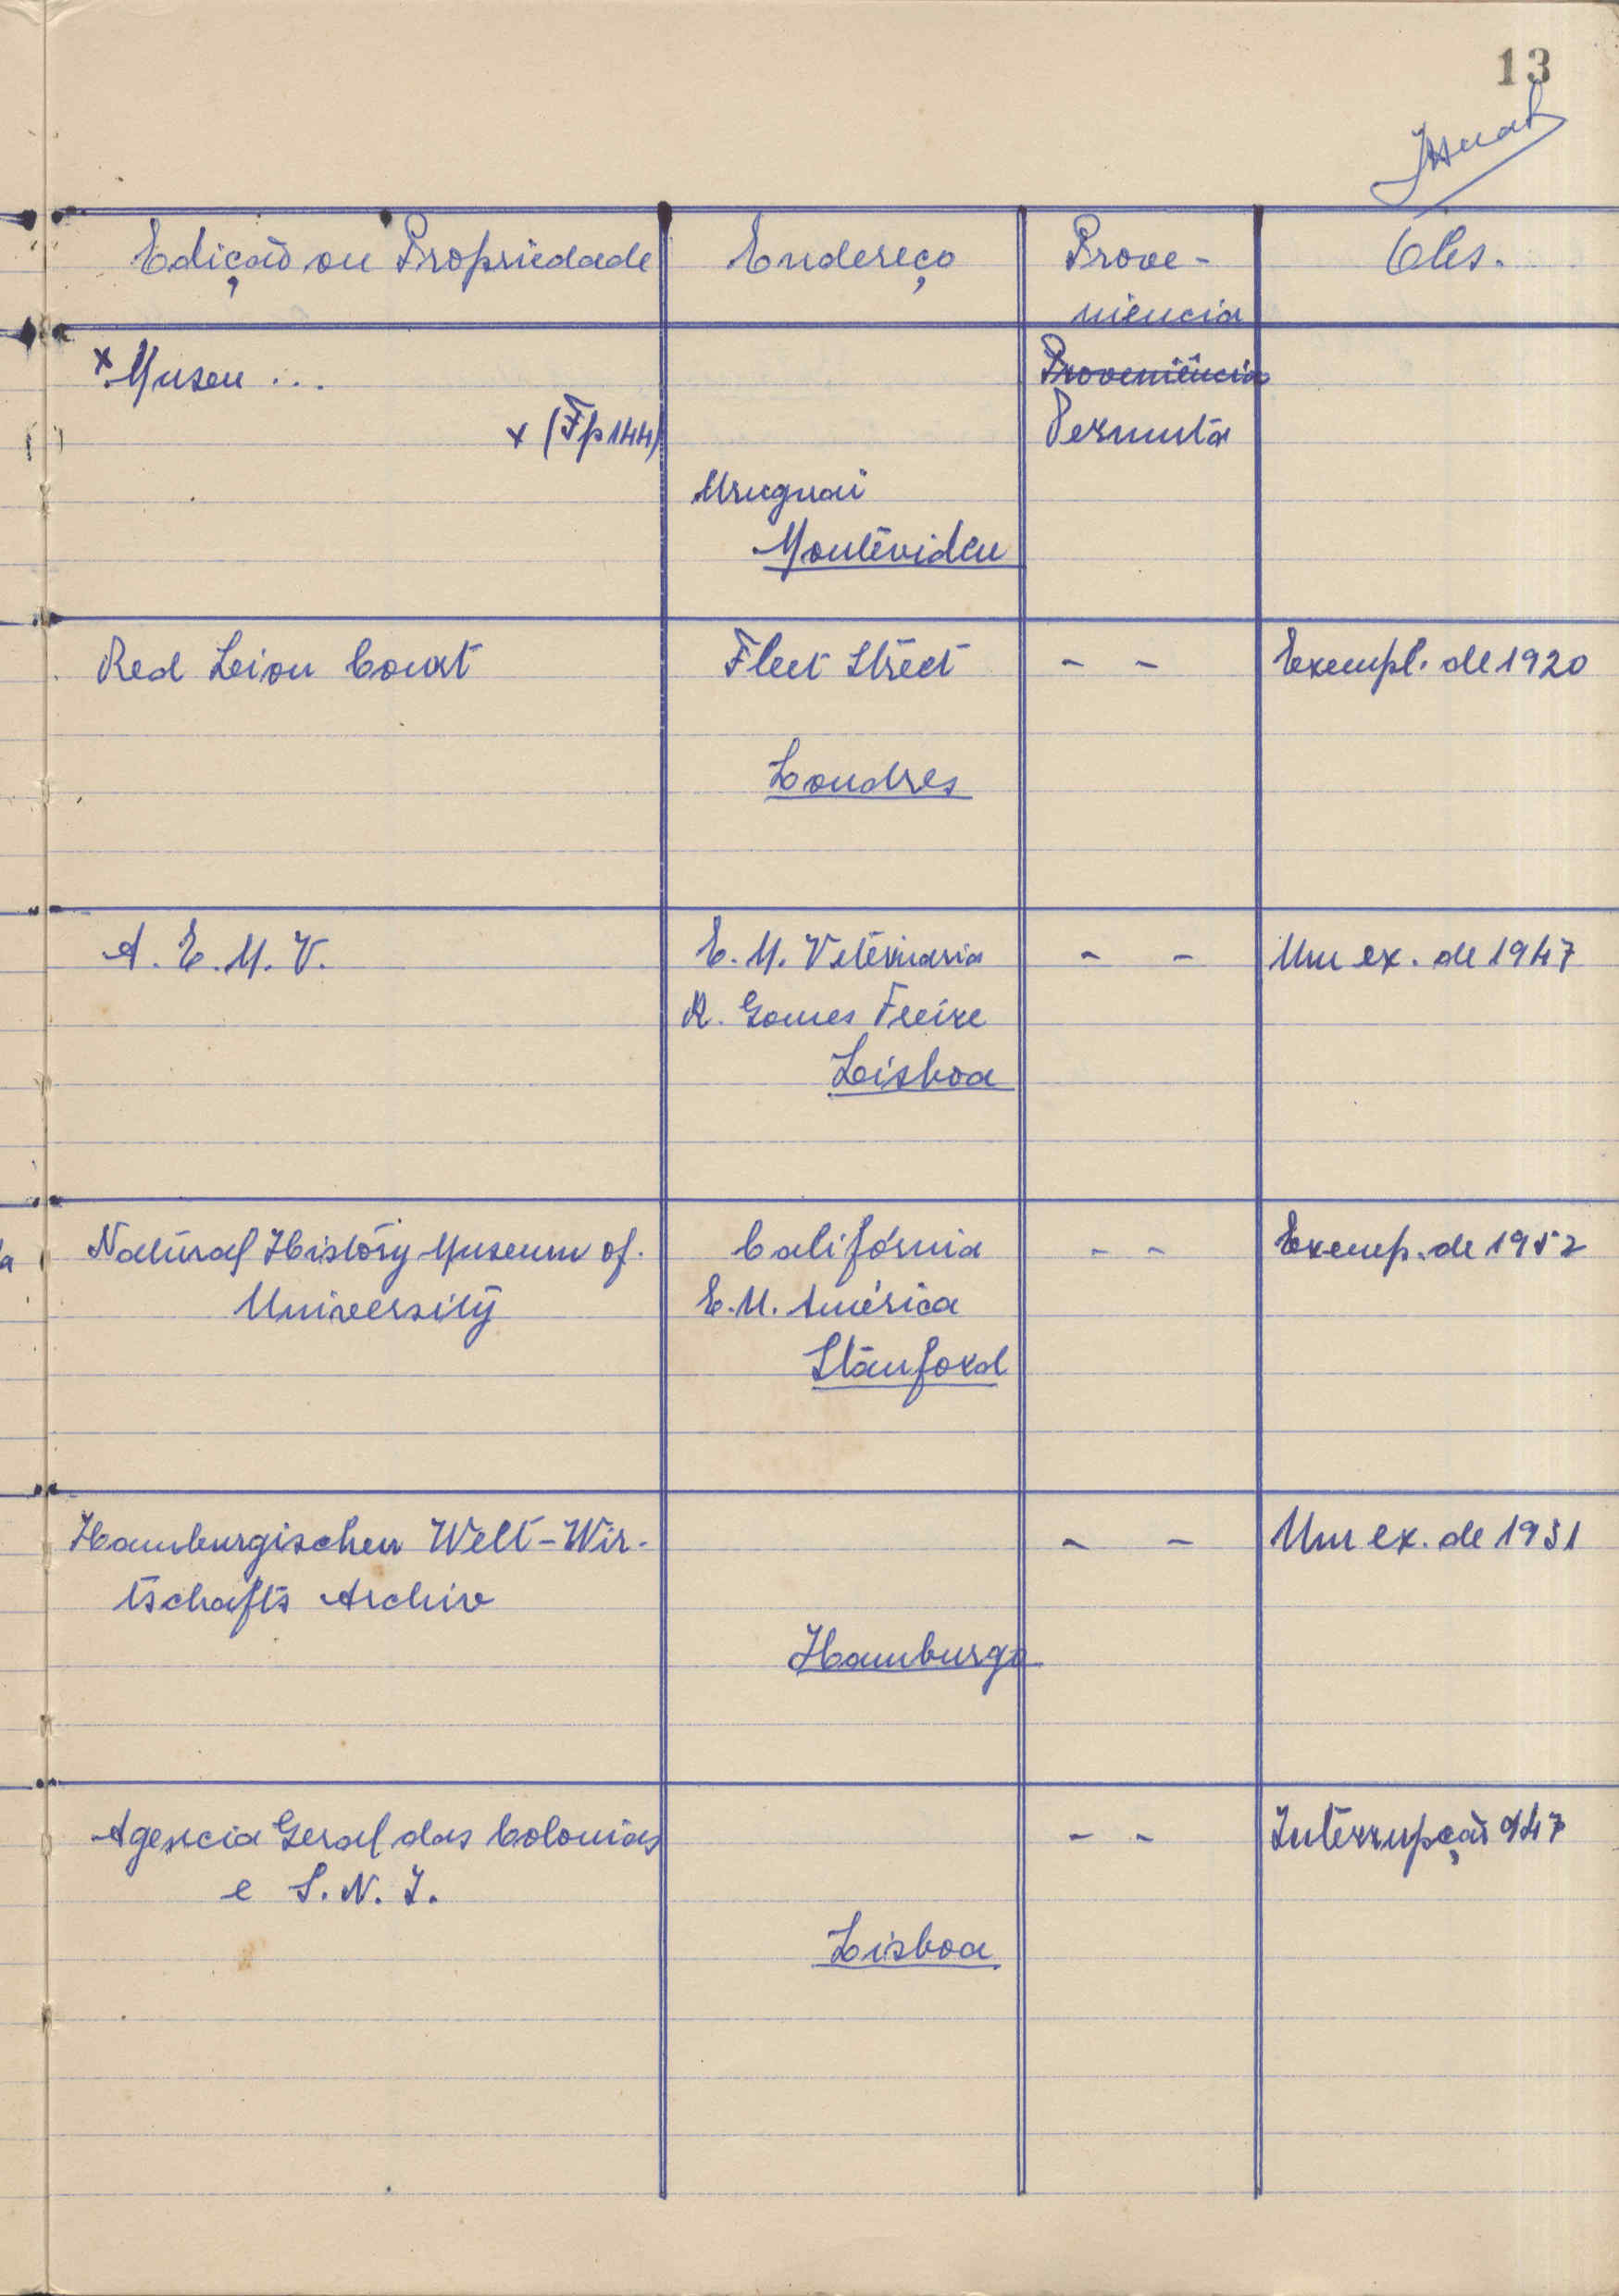 13
Edição ou Propriedade Endereço Prove- Obs.
niencia
x Museu ... Proveniência
x (Fp 144) Permuta
Uruguai
Montevideu
Red Leion Court Fleet Street - - Exempl. de 1920
Londres
A. E. M. V. E. M. Veterinaria - - Um ex. de 1947
R. Gomes Freire
Lisboa
Natural History Museum of. Califórnia - - Exemp. de 1952
University E.U. América
Stanford
Hamburgischen Welt-Wir- - - Um ex. de 1931
tschafts Archiv
Hamburgo
Agencia Geral das Colonias - - Interrupção 947
e S. N. I.
Lisboa